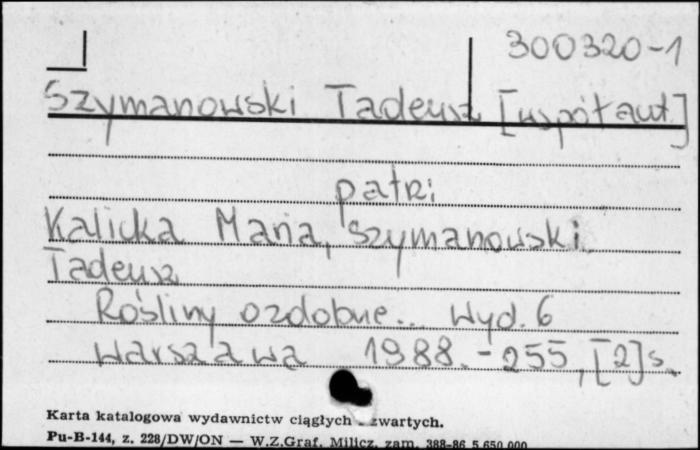 300320-1
Szymanowski Tadeusz [współaut.]
patrz
Kalicka Maria, Szymanowski
Tadeusz
Rośliny ozdobne... Wyd. 6
Warszawa 1988. - 255, [2] s.
Karta katalogowa wydawnictw ciągłych zwartych.
Pu-B-144, z. 228/DW/ON — W.Z.Graf. Milicz, zam. 388-86 5.650.000